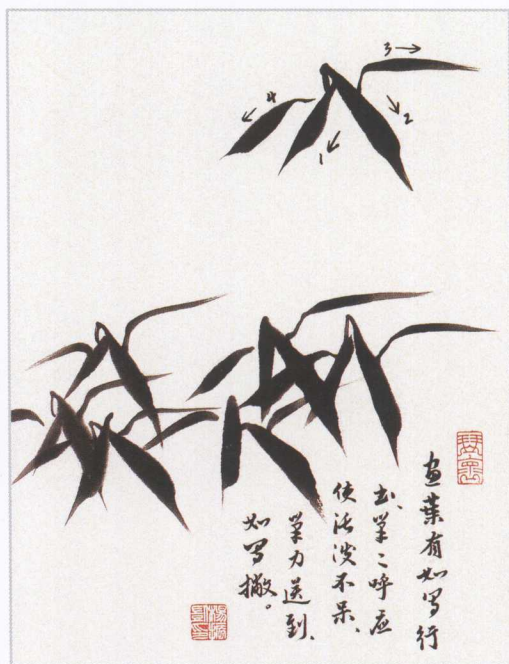 3
4
2
1
畫葉有如写行
书、筆々呼应
使活泼不呆、
筆力送到、
如写撇。